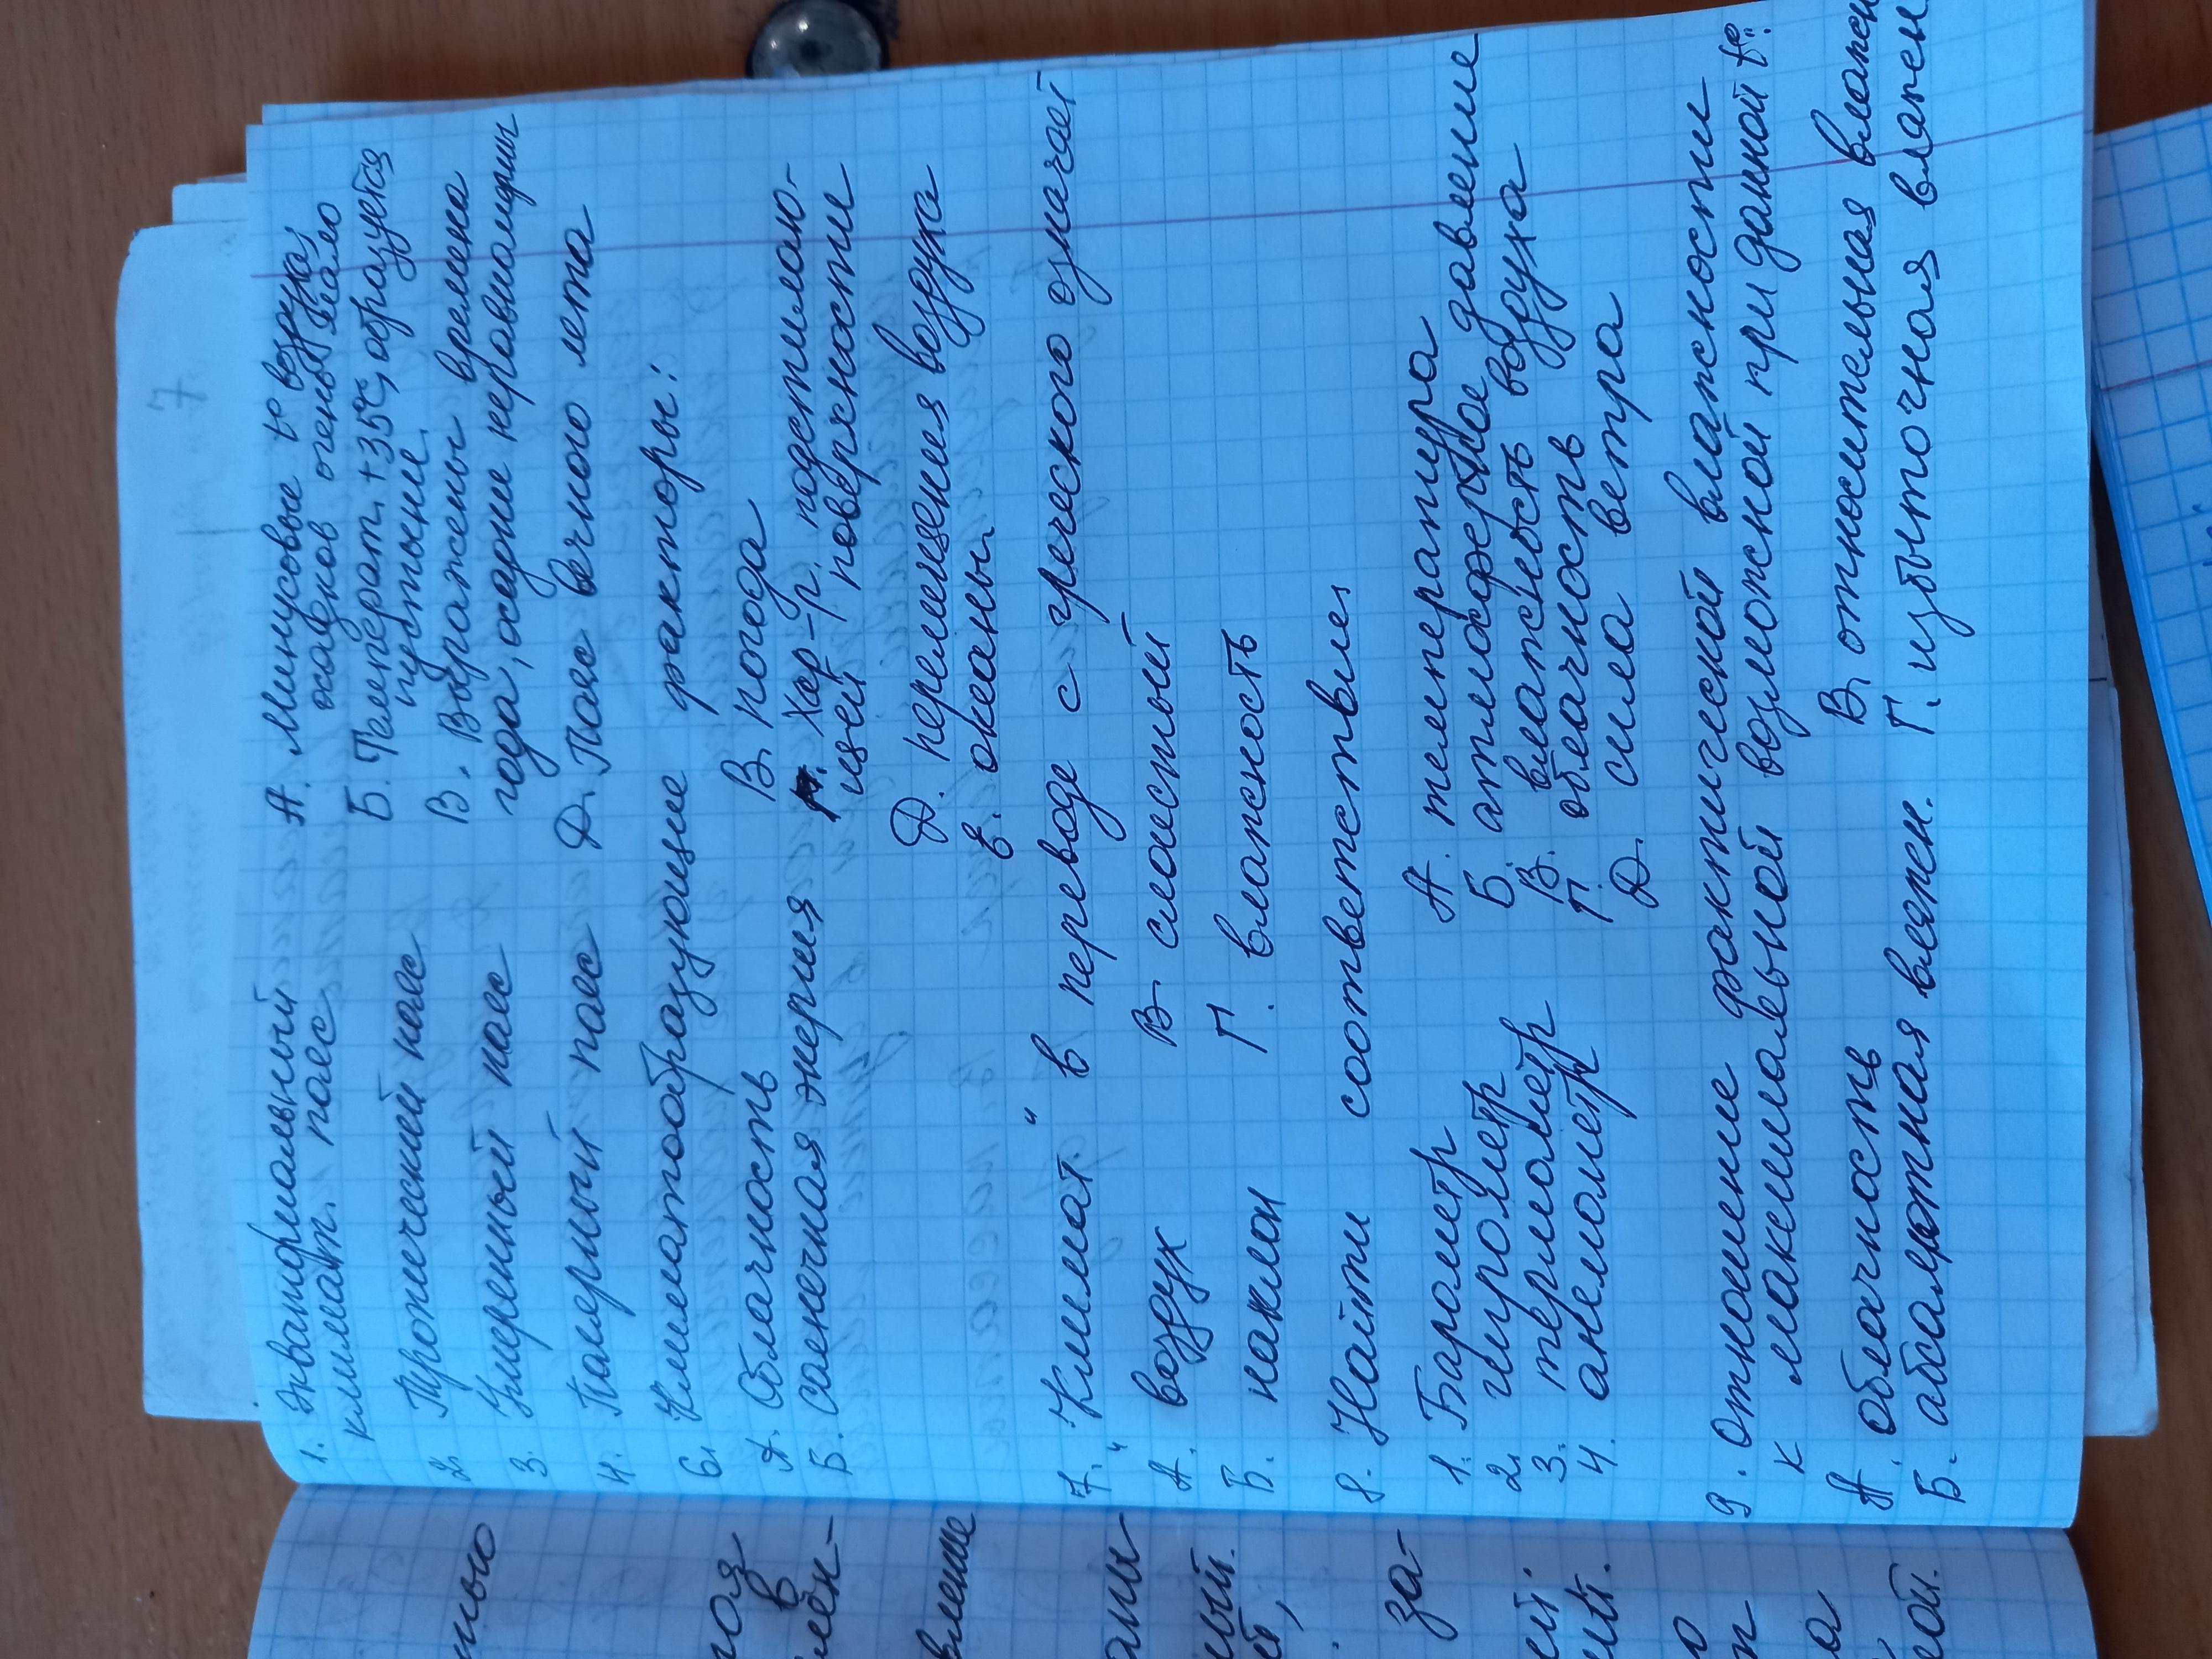 1. Экваториальный
климат. пояс
2. Тропический пояс
3. Умеренный пояс
4. Полярный пояс
А. Минусовые t° воздуха,
осадков очень мало
Б. Температ. +35°С, образуется
пустыни.
В. Выражены времена
года, осадки неравномерны
Д. Пояс вечного лета
6. Климатообразующие факторы:
А. Облачность
Б. Солнечная энергия
В. погода
Г. Хар-р. подстилаю-
щей поверхности
Д. перемещения воздуха
Е. океаны
7. "Климат" в переводе с греческого означает
А. воздух
Б. наклон
В. слоистый
Г. влажность
8. Найти соответствие.
1. Барометр
2. гигрометр
3. термометр
4. анемометр
А. температура
Б. атмосферное давление
В. влажность воздуха
Г. облачность
Д. сила ветра
9. Отношение фактической влажности
к максимальной возможной при данной t°:
А. Облачность
Б. абсолютная влажн.
В. относительная влажн
Г. избыточная влажн
нью
оз
в
лен-
вление
аны-
ный.
й,
за-
ей.
ий.
о
п
а
ной.